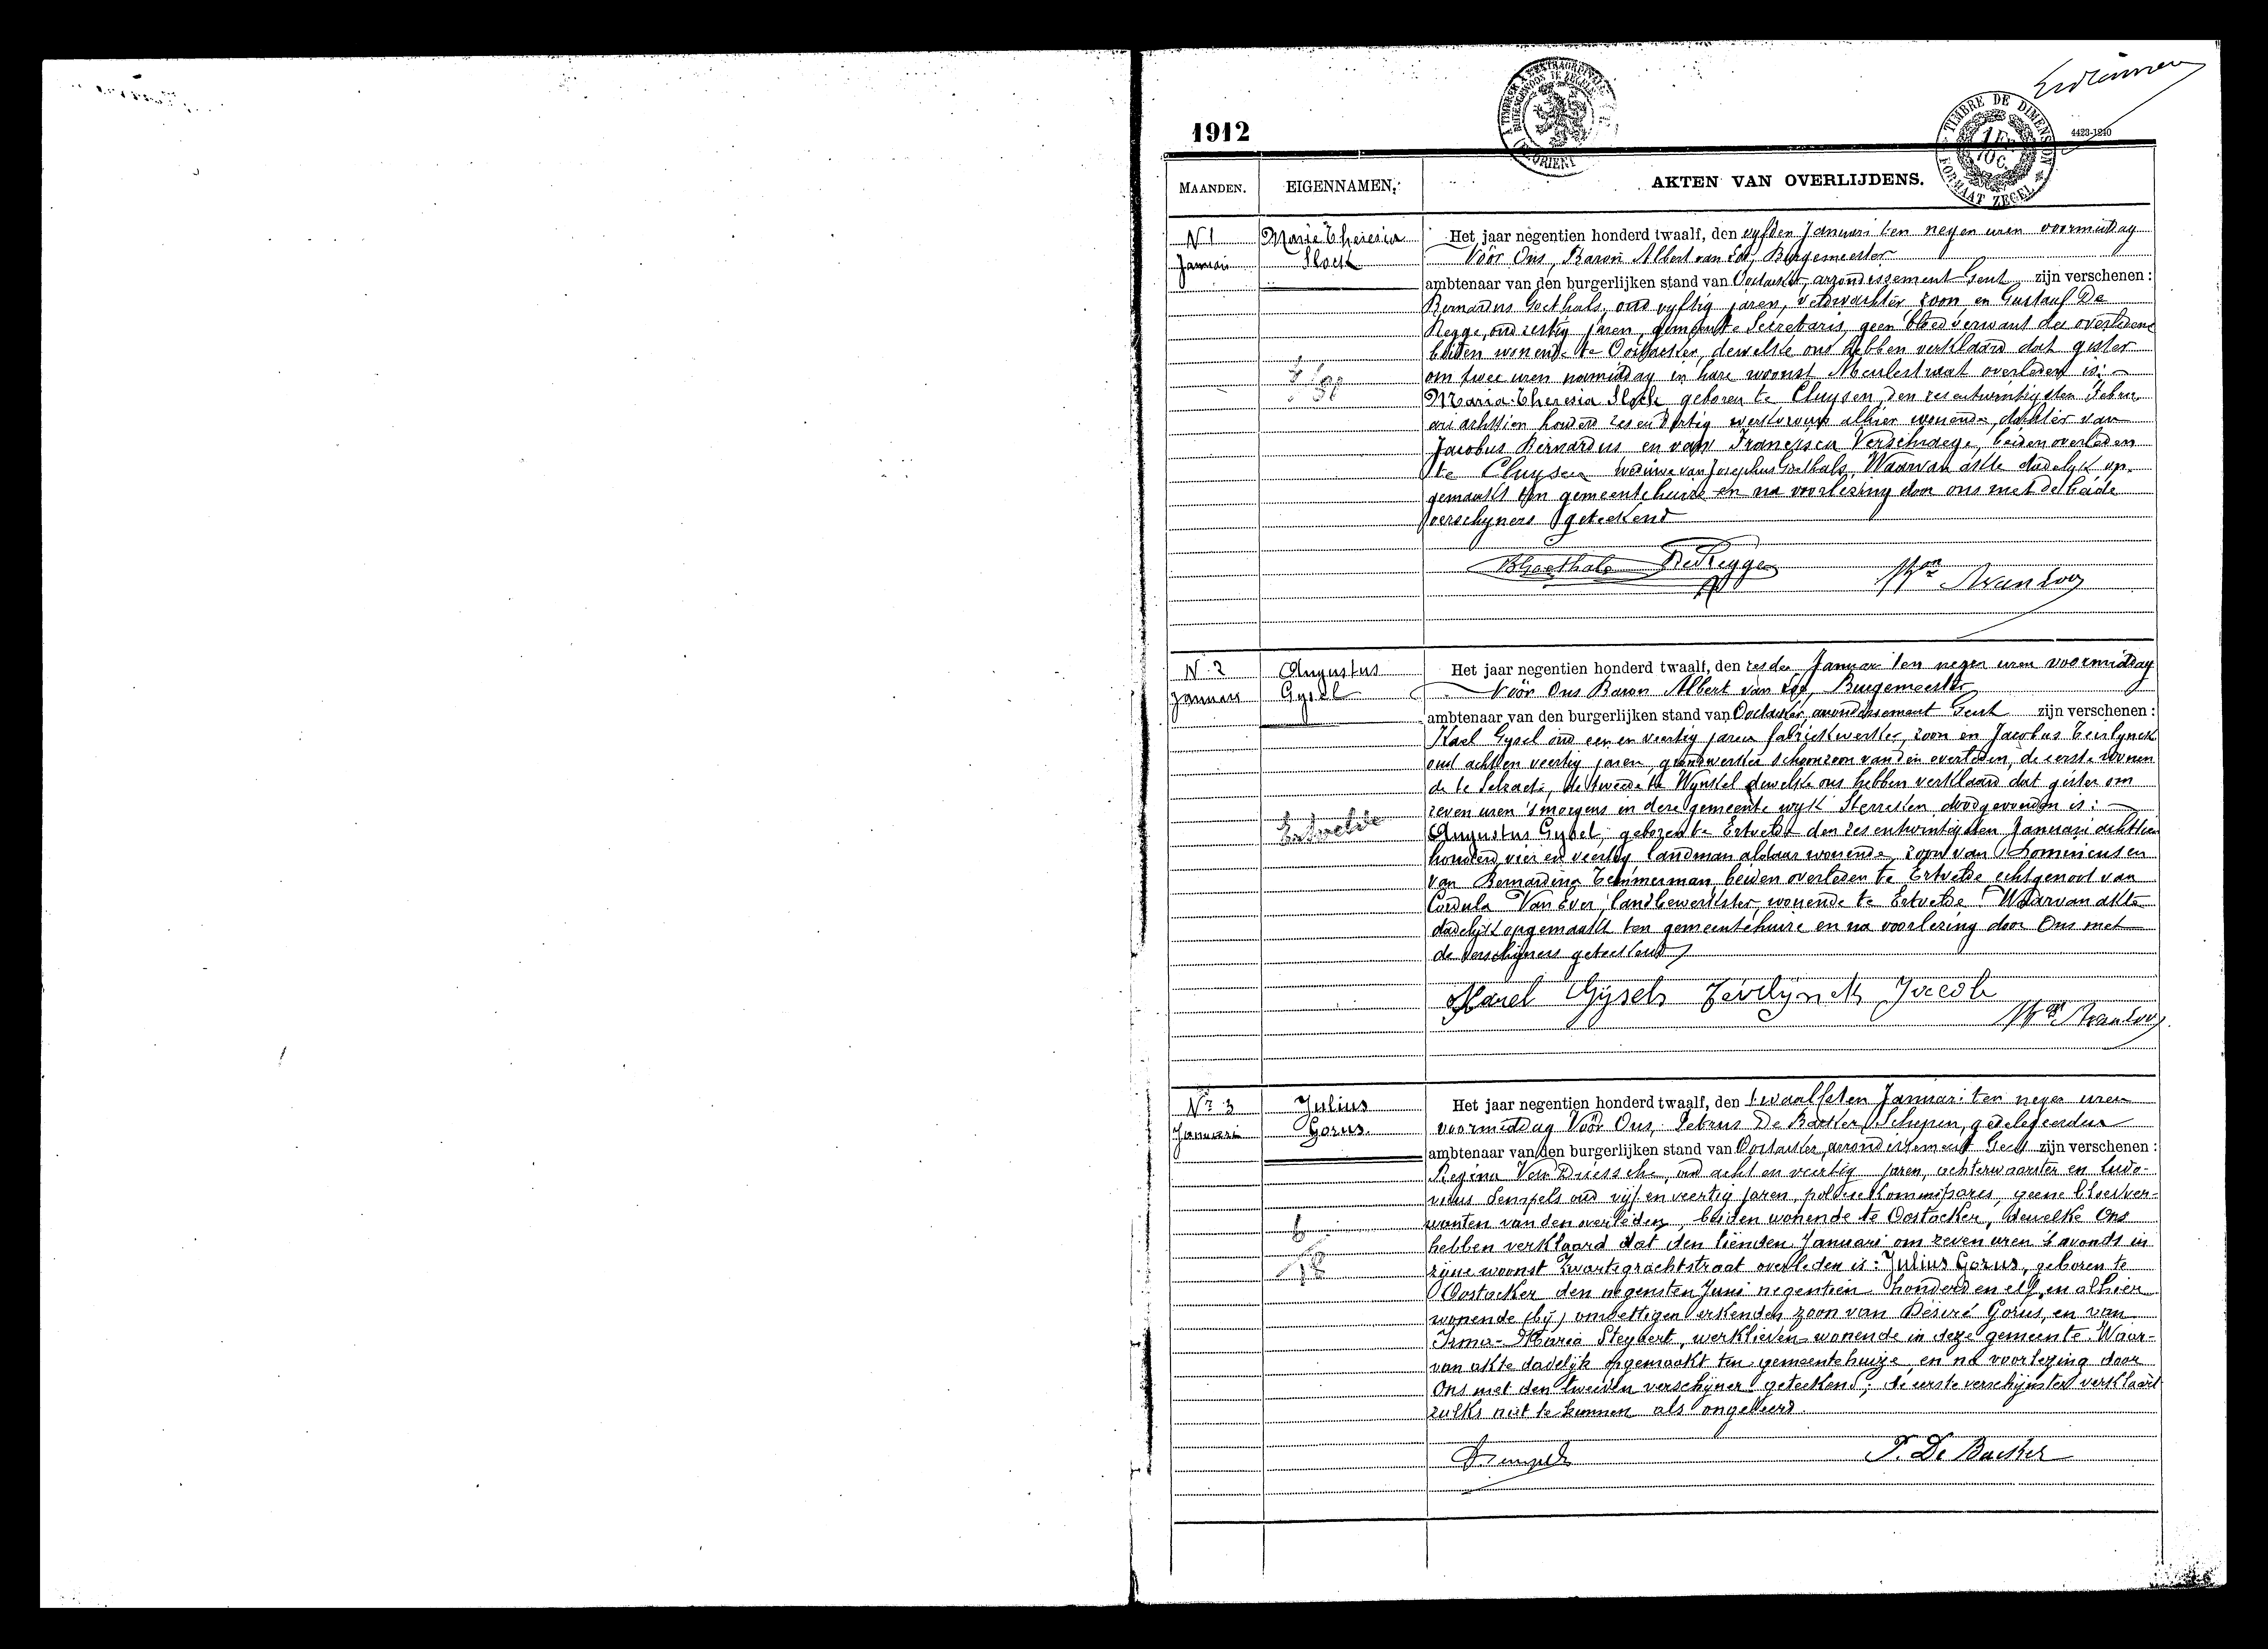 1912
4423-1210
TIMBRE DE DIMENSION
FORMAAT ZEGEL
MAANDEN. EIGENNAMEN. AKTEN VAN OVERLIJDENS.
N 1
Januari
Marie Theresia
Slock
Het jaar negentien honderd twaalf, den vyfden Januari ten negen uren voormiddag
Vóór Ons, Baron Albert van Loo, Burgemeester
ambtenaar van den burgerlijken stand van Oostacker, arrondissement Gent zijn verschenen :
Bernardus Goethals, oud vyftig jaren, veldwachter zoon en Gustaaf De
Regge, oud zestig jaren, gemeente Secretaris, geen bloedverwant der overledene
beiden wonende te Oostacker, dewelke ons hebben verklaard dat gister
om twee uren namiddag in hare woonst Meulestraat overleden is:
Maria-Theresia Slock geboren te Cluysen, den zesentwintigsten Febru
ari achttien honderd zes en dertig alhier wonende, dochter van
Jacobus Bernardus en van Francisca Verschraege, beiden overleden
te Cluysen weduwe van Josephus Goethals. Waarvan akte dadelyk op-
gemaakt ten gemeentehuize en na voorlezing door ons met de beide
verschyners geteekend
BGoethals DeRegge Bon AvanLoo
N. 2
Januari
Augustus
Gysel
Ertvelde
Het jaar negentien honderd twaalf, den zesden Januari ten negen uren voormiddag
Vóór Ons Baron Albert van Loo, Burgemeester
ambtenaar van den burgerlijken stand van Oostacker, arrondissement Gent zijn verschenen :
Karel Gysel oud een en veertig jaren fabriekwerker, zoon en Jacobus Teirlynck
oud acht en veertig jaren, grondwerker schoonzoon van den overleden, de eerste wonen
de te Selzaete, de tweede te Wynkel dewelke ons hebben verklaard dat gister om
zeven uren 's morgens in deze gemeente wyk Sterreken doodgevonden is:
Augustus Gysel, geboren te Ertvelde den zes entwintigsten Januari achttien
honderd vier en veertig, landman aldaar wonende, zoon van Domenicus en
van Bernardina Temmerman beiden overleden te Ertvelde echtgenoot van
Cordula Van Ever, landbewerkster, wonende te Ertvelde. Waarvan akte
dadelijk opgemaakt ten gemeentehuize en na voorlezing door Ons met
de verschijners geteekend
Karel Gijsels Teirlijnck Jacob
Bon AvanLoo
Nr 3
Januari
Julius
Gorus
Het jaar negentien honderd twaalf, den twaalfsten Januari ten negen uren
voormiddag Vóór Ons, Petrus De Backer, Schepen, gedelegeerden
ambtenaar van den burgerlijken stand van Oostacker, arrondissement Gent zijn verschenen :
Regina Van Driessche, oud acht en veertig jaren, achterwaarster en Ludo-
vicus Sempels oud vijf en veertig jaren, policie kommissaris, geene bloedver-
wanten van den overleden, beiden wonende te Oostacker, dewelke Ons
hebben verklaard dat den tienden Januari om zeven uren 's avonds in
zijne woonst Zwartegrachtstraat overleden is: Julius Gorus, geboren te
Oostacker den negensten Juni negentien honderd en elf, en alhier
wonende (bij) onwettigen erkenden zoon van Désiré Gorus, en van
Irma-Maria Steyaert, werklieden wonende in deze gemeente. Waar-
van akte dadelijk opgemaakt ten gemeentehuize, en na voorlezing door
Ons met den tweeden verschijner geteekend, de eerste verschijnster verklaart
zulks niet te kunnen als ongeleerd.
LSempels P. De Backer